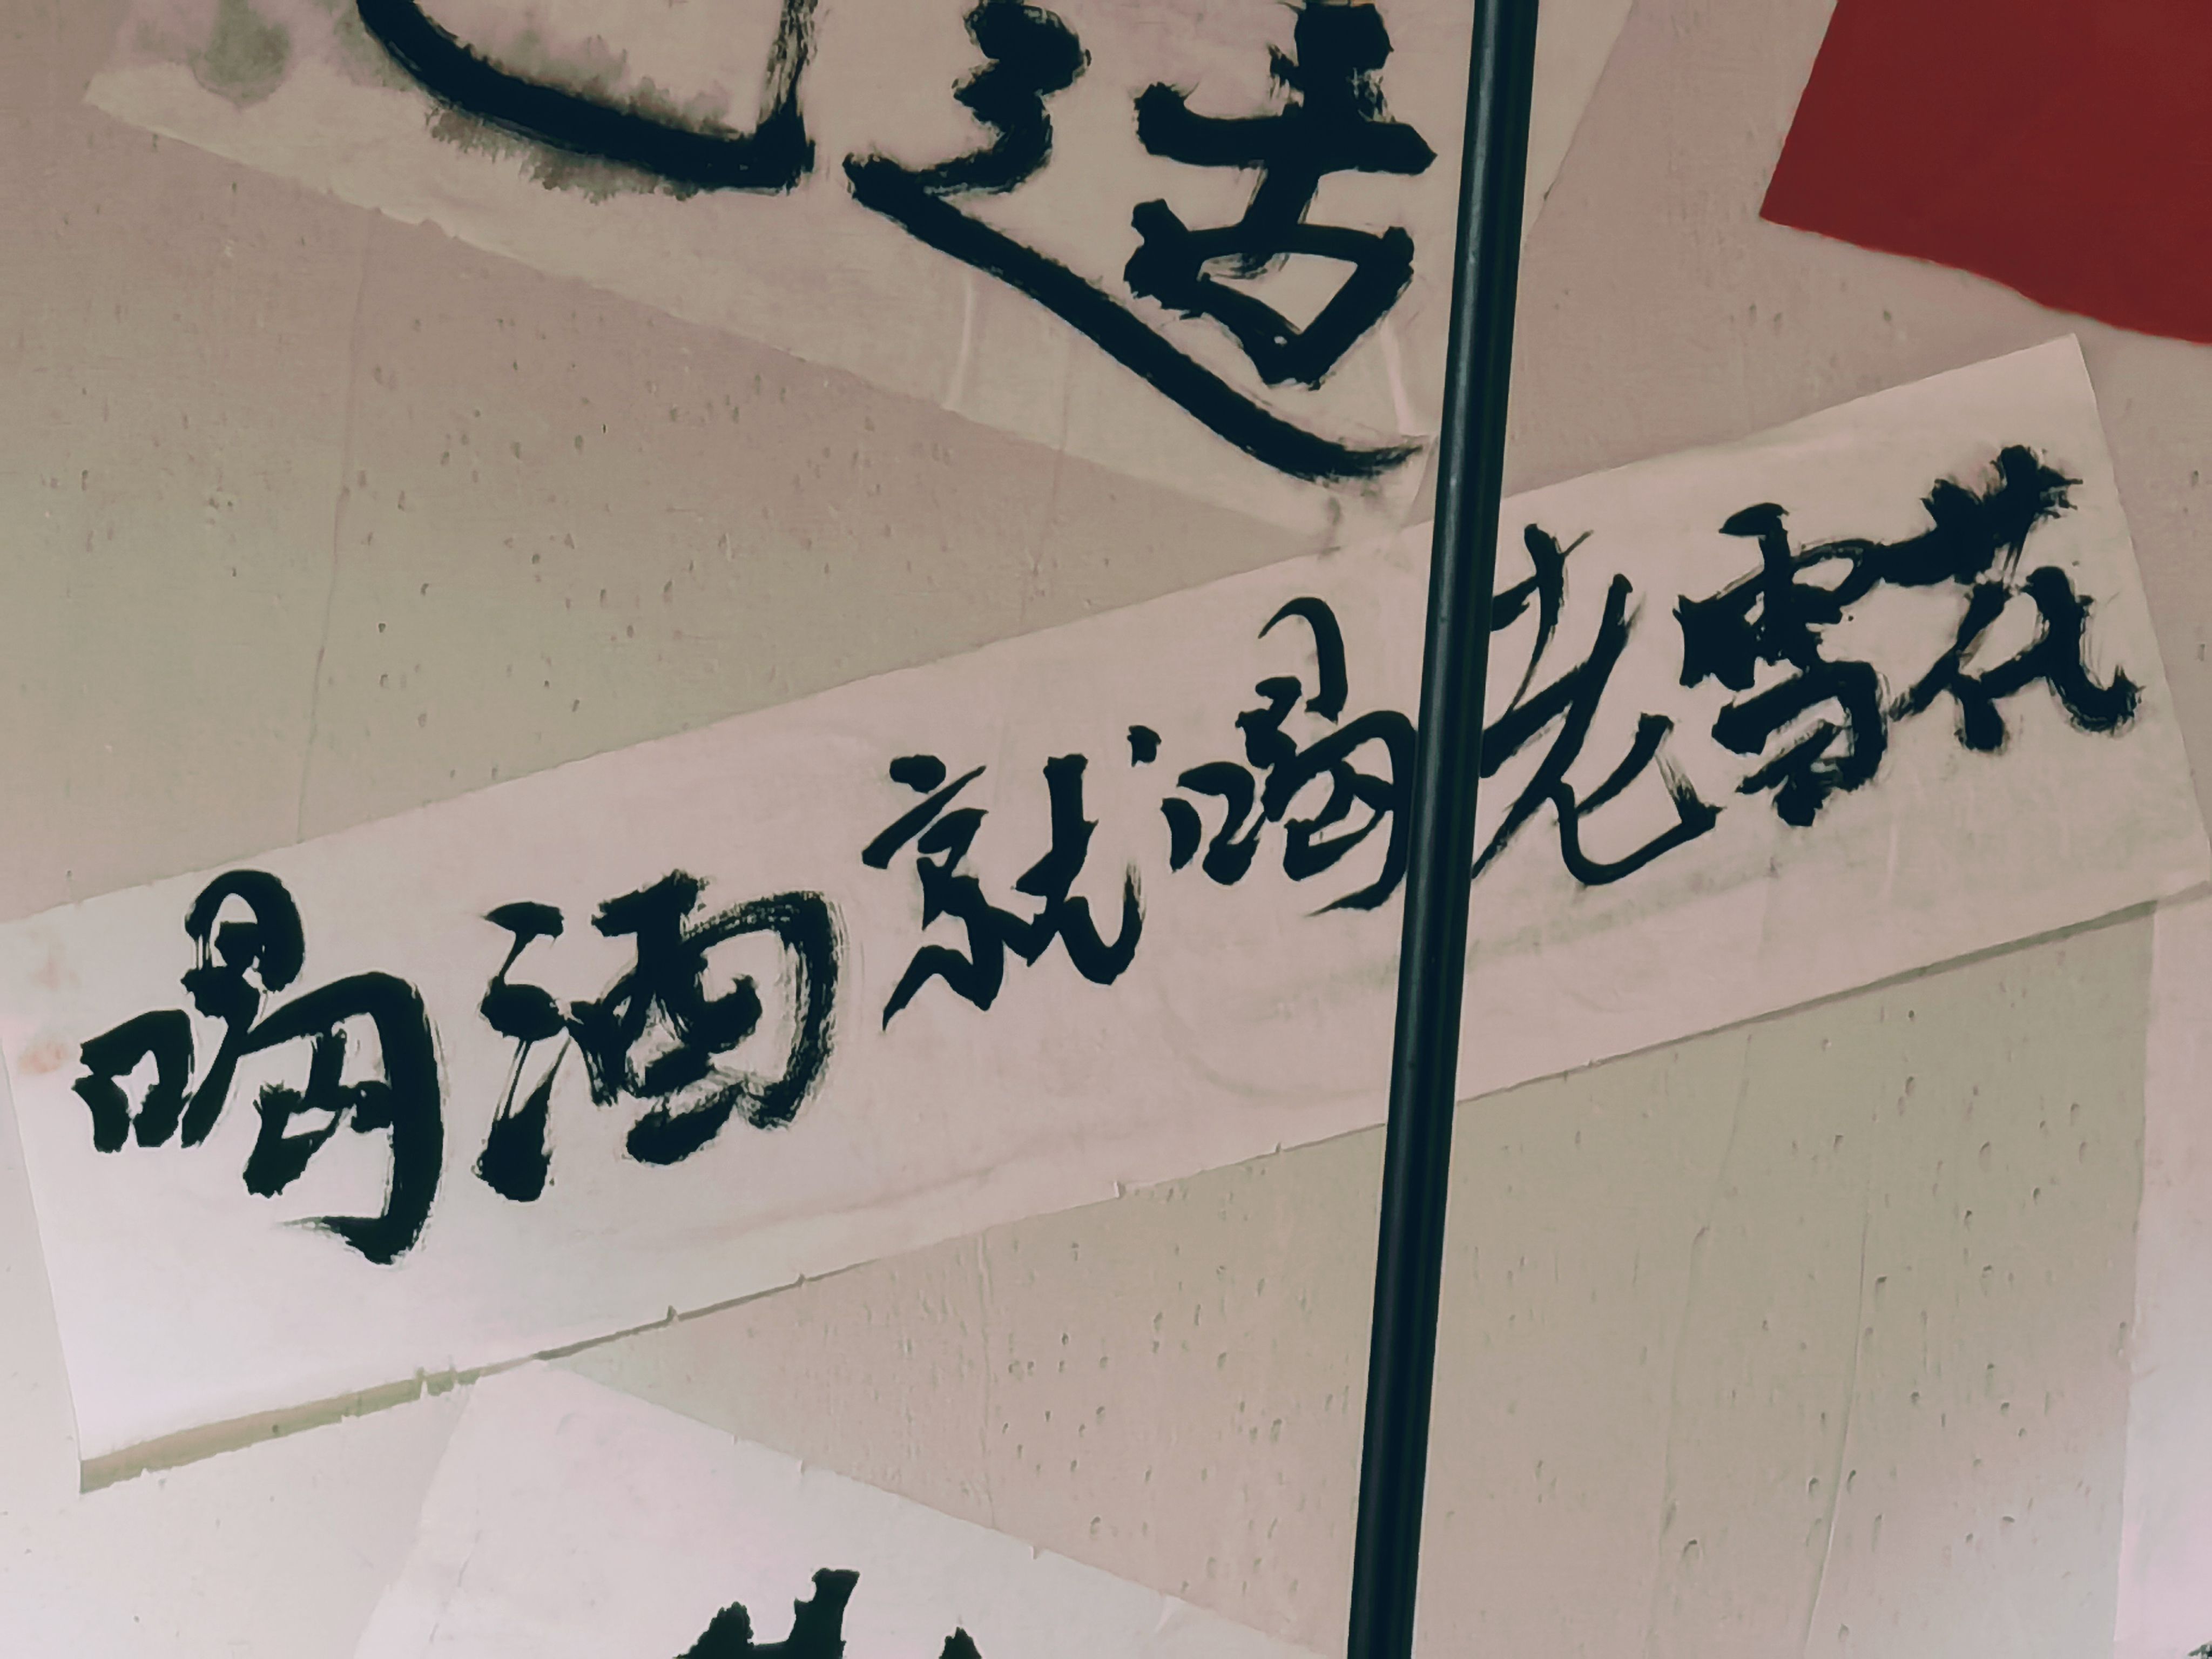 喝酒就喝老雪花